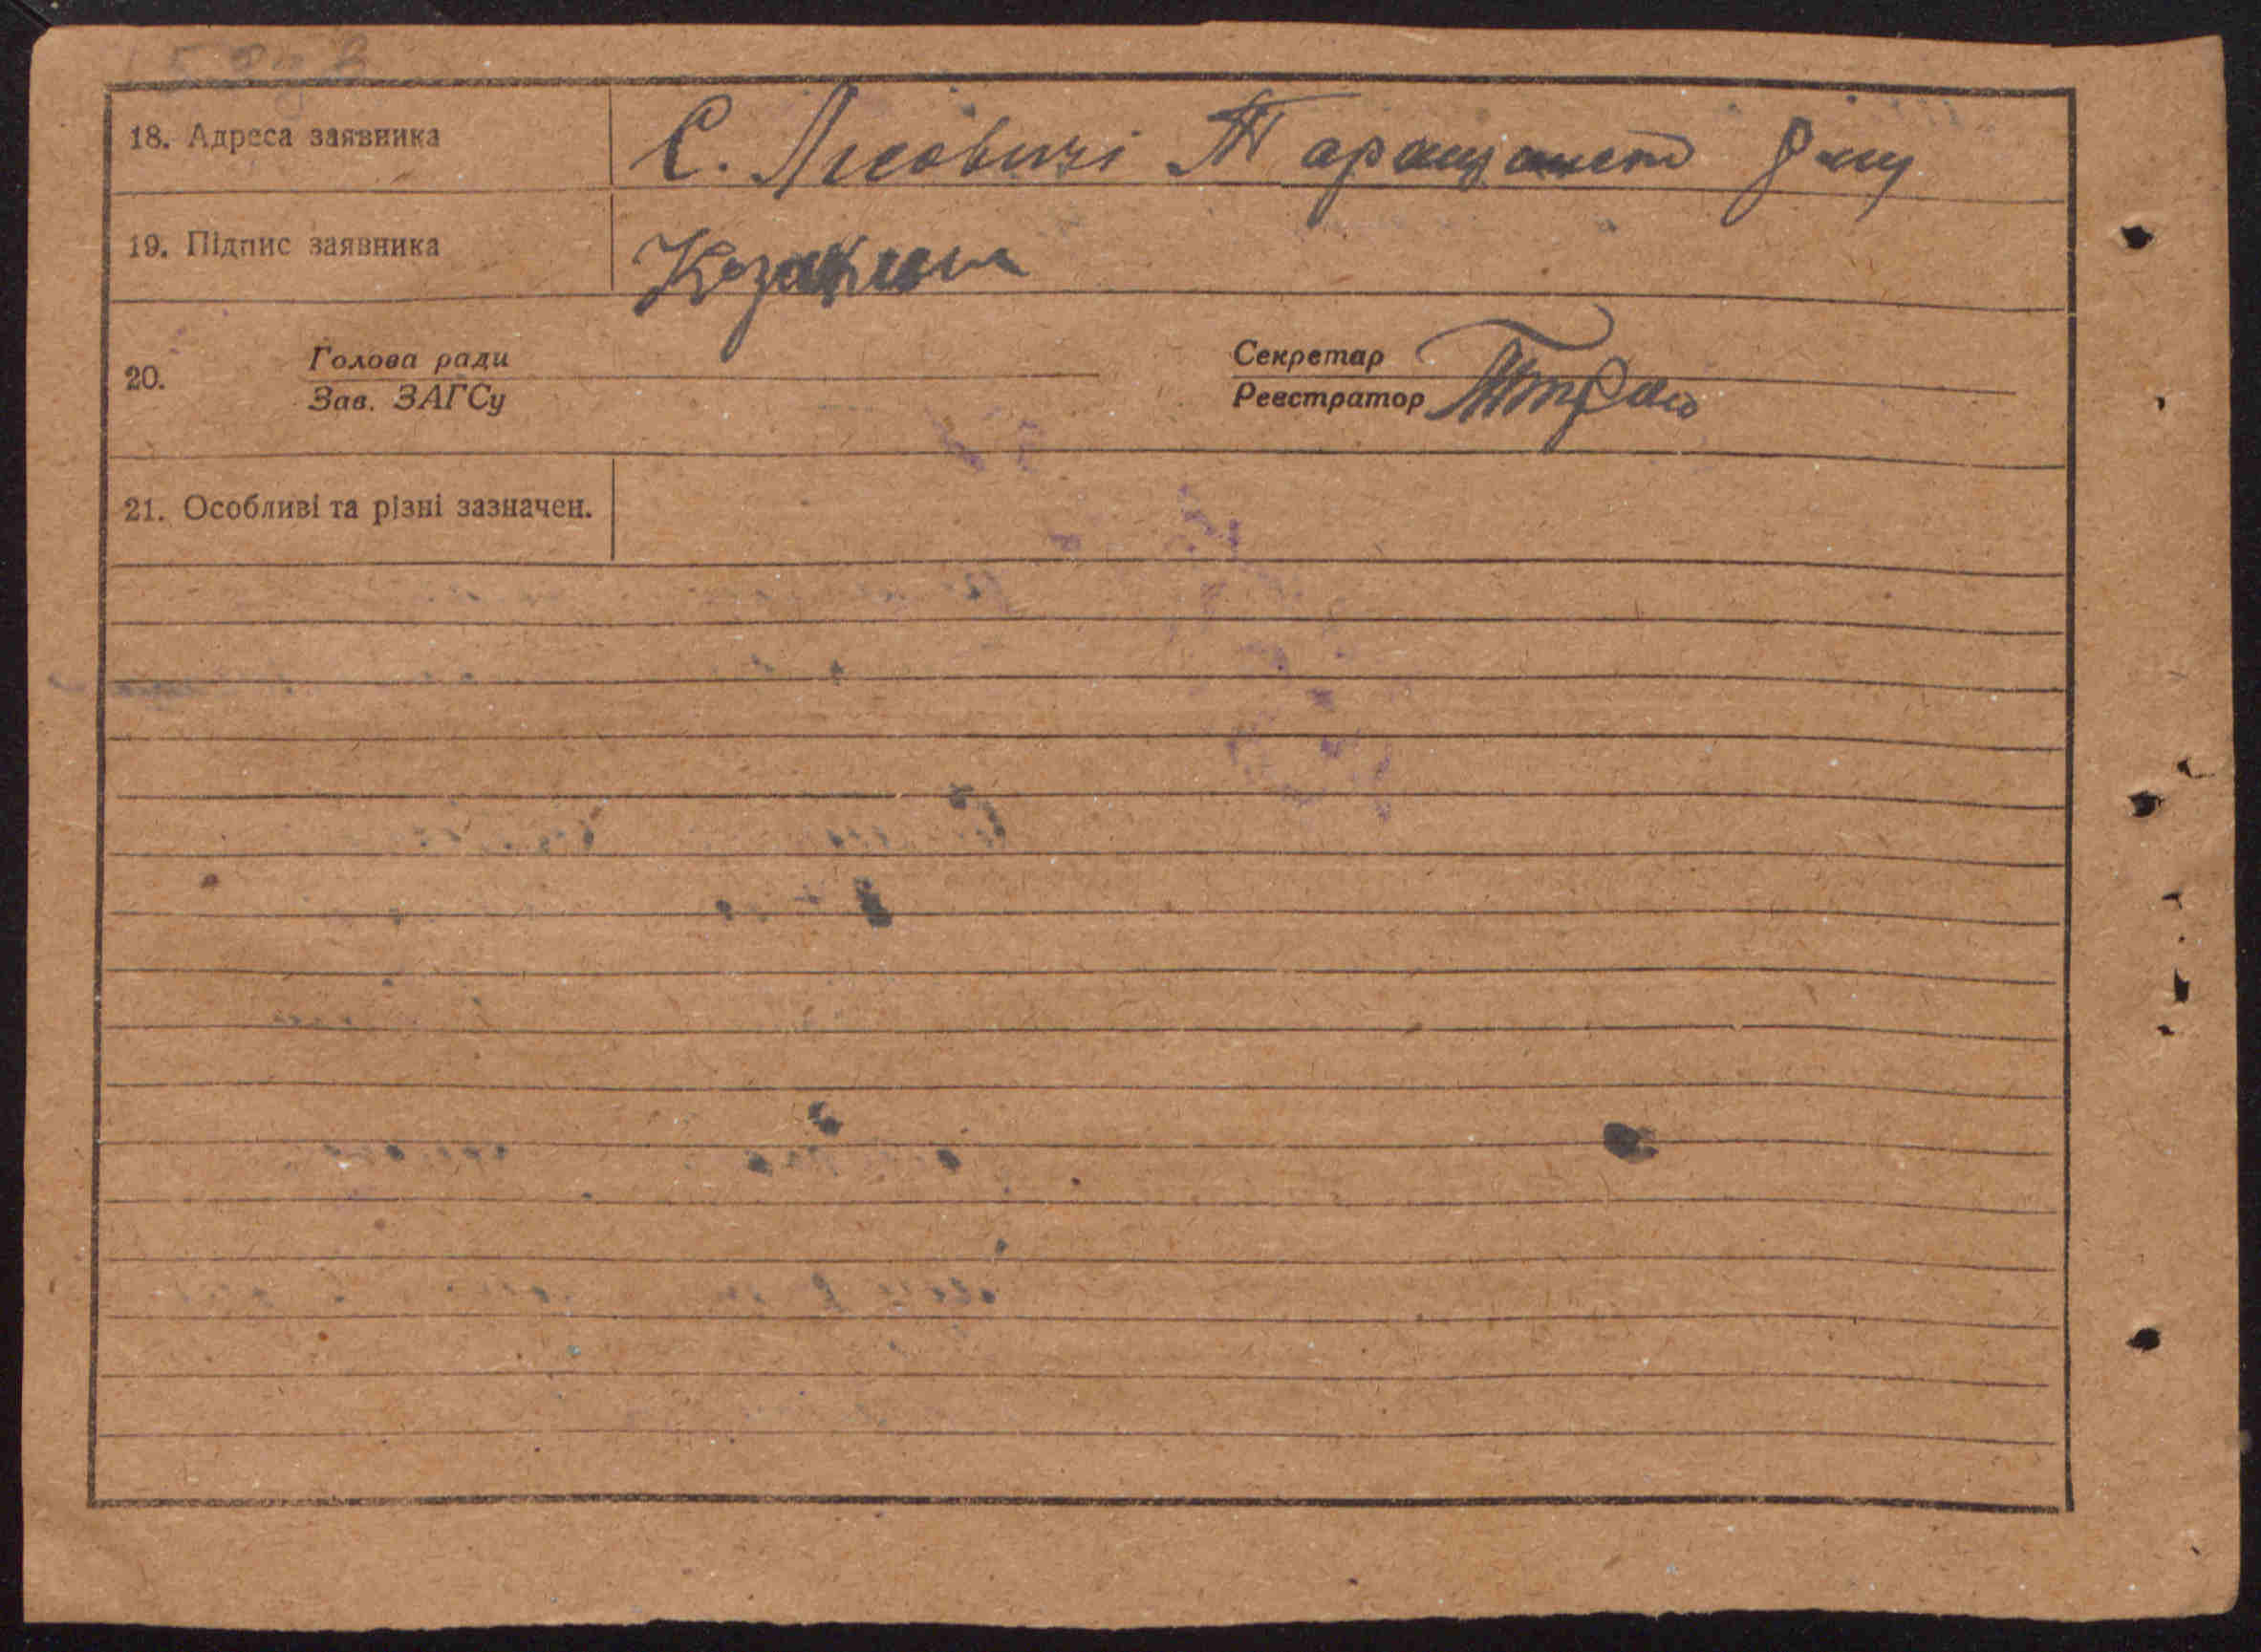 18. Адреса заявника С. Лісовичі Таращанськ р-ну
19. Підпис заявника
20. Голова ради Секретар
Зав. ЗАГСу Реєстратор
21. Особливі та різні зазначен.